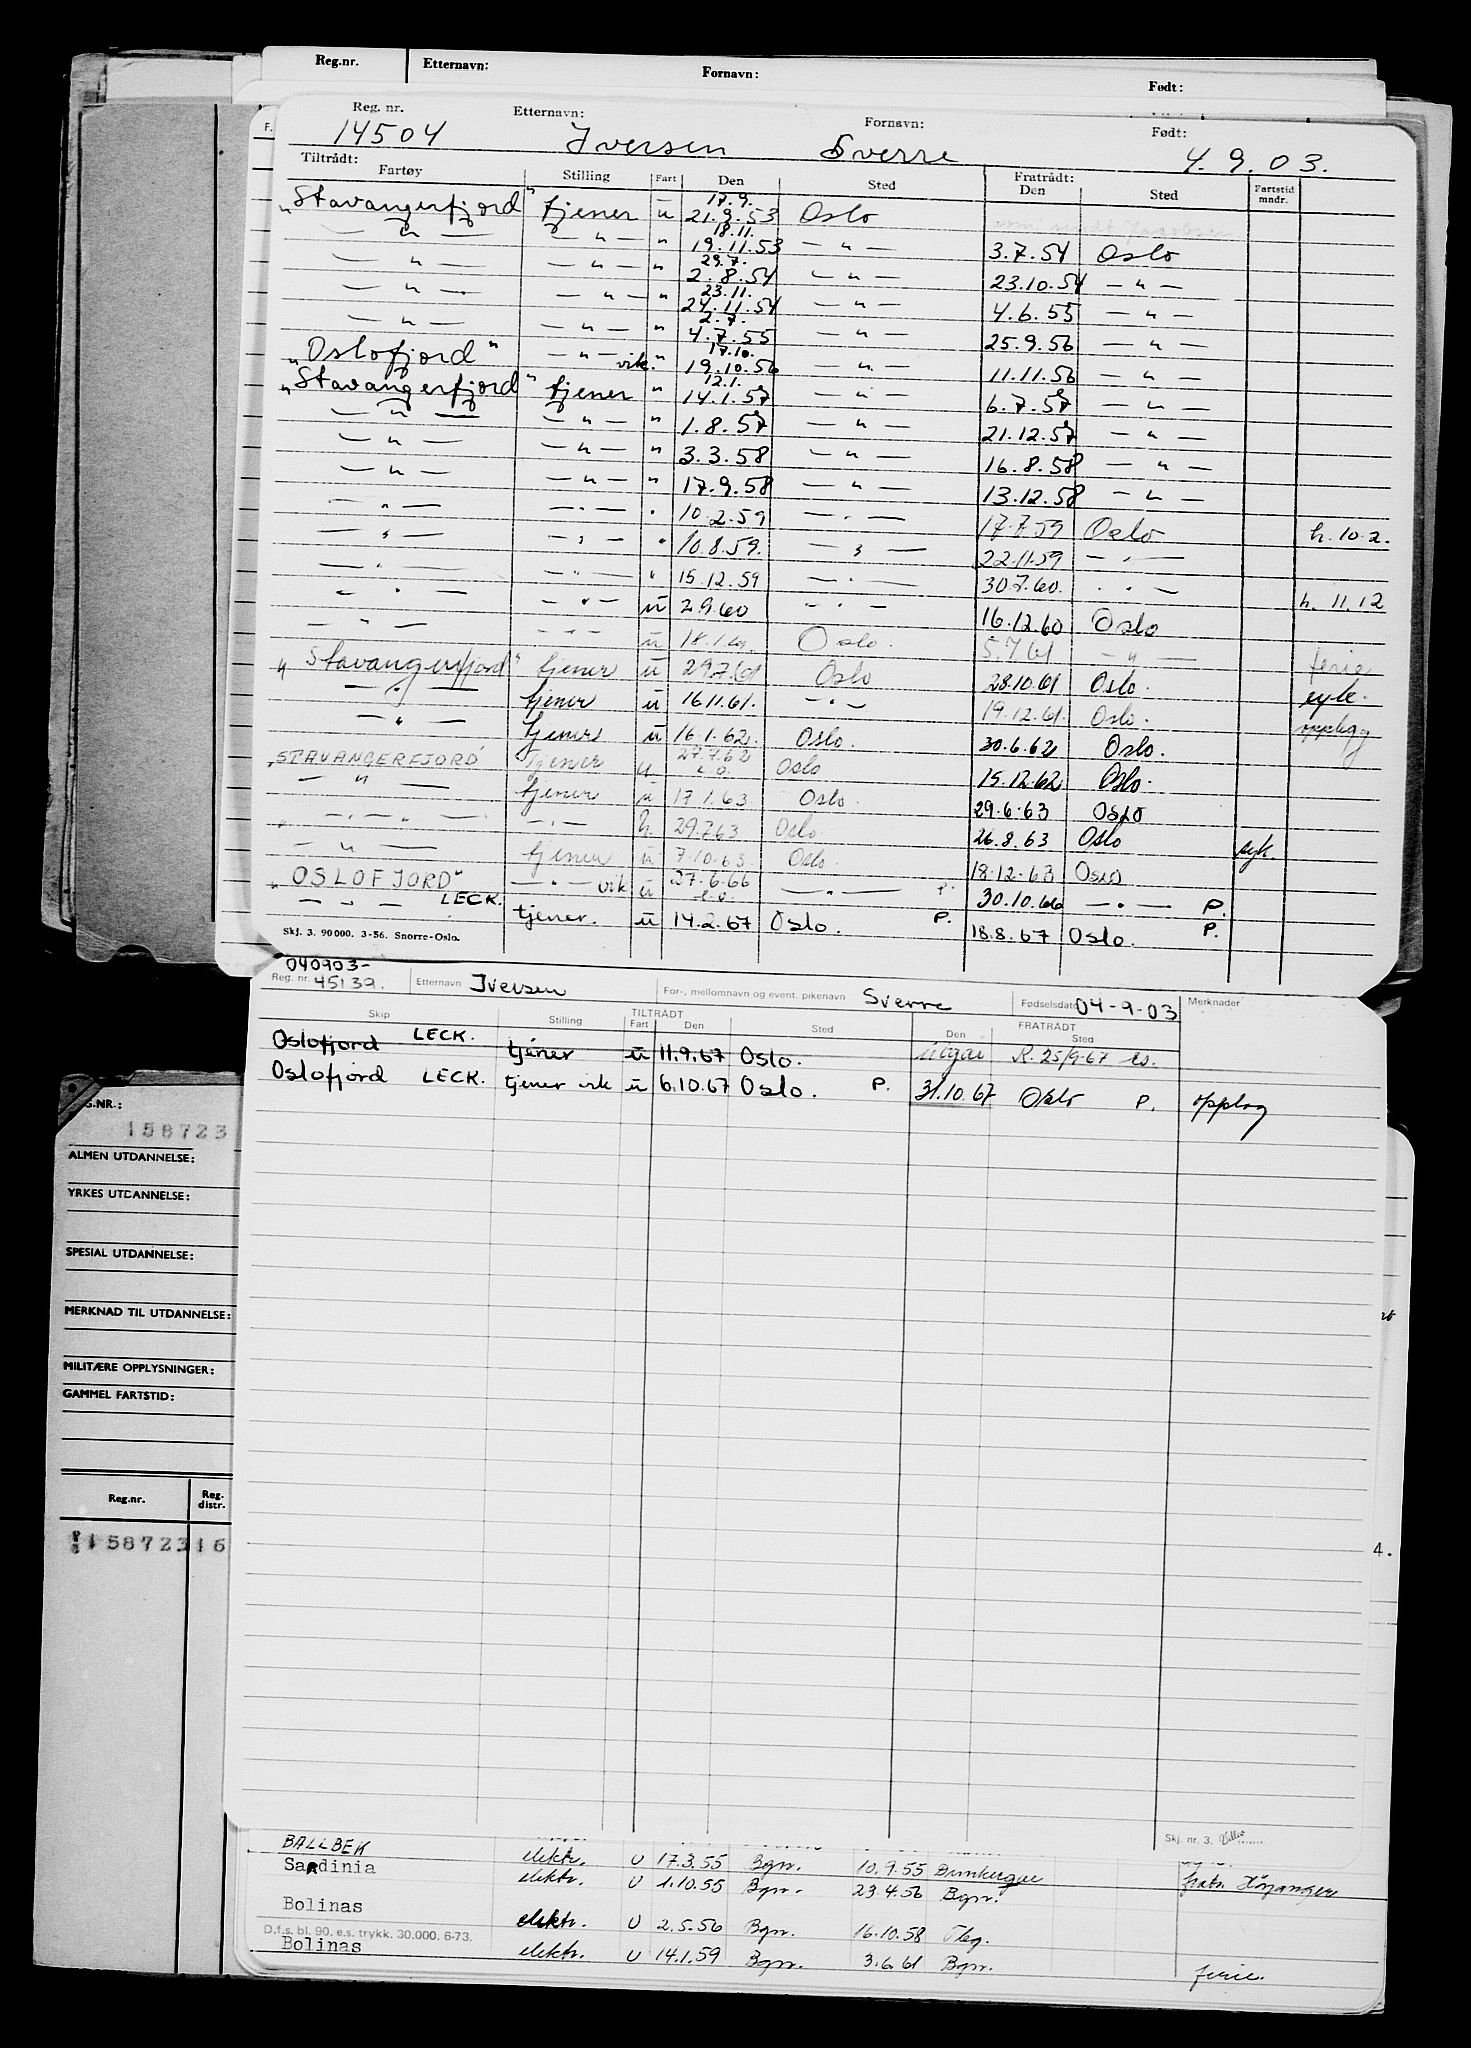 Reg.nr. Etternavn: Fornavn: Født:
Reg. nr. Etternavn: Fornavn: Født:
14504 Iversen Sverre 4.9.03.
Tiltrådt: Fratrådt:
Fartøy Stilling Fart Den Sted Den Sted Fartstid mndr.
17.9.
"Stavangerfjord" tjener u 21.9.53 Oslo
18.11.
— " — — " — " 19.11.53 — " — 3.7.54 Oslo
29.7.
— " — — " — " 2.8.54 — " — 23.10.54 — " —
23.11.
— " — — " — " 24.11.54 — " — 4.6.55 — " —
2.7.
— " — — " — " 4.7.55 — " — 25.9.56 — " —
17.10.
"Oslofjord" — " — vik. " 19.10.56 — " — 11.11.56 — " —
12.1.
"Stavangerfjord" tjener " 14.1.57 — " — 6.7.57 — " —
— " — — " — " 1.8.57 — " — 21.12.57 — " —
— " — — " — " 3.3.58 — " — 16.8.58 — " —
— " — — " — " 17.9.58 — " — 13.12.58 — " —
— " — — " — " 10.2.59 — " — 17.7.59 Oslo h. 10.2.
— " — — " — " 10.8.59. — " — 22.11.59 — " —
— " — — " — " 15.12.59 — " — 30.7.60. — " — h. 11.12
— " — — " — u 2.9.60 — " — 16.12.60 Oslo
— " — — " — u 18.1.61. Oslo. 5.7.61 — " — ferie
"Stavangerfjord" tjener u 29.7.61 Oslo 28.10.61 Oslo. syk.
— " — tjener u 16.11.61. — " — 19.12.61. Oslo. opplegg
— " — tjener u 16.1.62. Oslo. 30.6.62 Oslo.
"STAVANGERFJORD" tjener u 27.7.62 Oslo 15.12.62 Oslo.
— " — tjener u 17.1.63. Oslo. 29.6.63 Oslo
— " — — " — h. 29.7.63 Oslo 26.8.63 Oslo syk.
— " — tjener u 7.10.63. Oslo. 18.12.63 Oslo
"OSLOFJORD" — " — vik u 27.6.66 — " — P. 30.10.66 — " — P.
— " — LECK. tjener. u 14.2.67 Oslo. P. 18.8.67 Oslo. P.
Skj. 3. 90 000. 3-56. Snorre-Oslo.
040903-
Reg. nr. 45139. Etternavn Iversen For-, mellomnavn og event. pikenavn Sverre Fødselsdato 04-9-03 Merknader
TILTRÅDT FRATRÅDT
Skip Stilling Fart Den Sted Den Sted
Oslofjord LECK. tjener u 11.9.67 Oslo. utgår R. 25/9-67
Oslofjord LECK. tjener vik u 6.10.67 Oslo. P. 31.10.67 Oslo P. opplag
G.NR.:
158723
ALMEN UTDANNELSE:
YRKES UTDANNELSE:
SPESIAL UTDANNELSE:
MERKNAD TIL UTDANNELSE:
MILITÆRE OPPLYSNINGER:
GAMMEL FARTSTID:
Reg.nr. Reg. distr.
158723 16
4.
Skj. nr. 3.
BALLBEK elektr. U 17.3.55 Bgn. 10.9.55 Dunkerque
Sardinia elektr. U 1.10.55 Bgn. 23.4.56 Bgn. fratr. Höyanger
Bolinas elektr. U 2.5.56 Bgn. 16.10.58
D.f.s. bl. 90. e.s. trykk. 30.000. 6-73.
Bolinas elektr. U 14.1.59 Bgn. 3.6.61 Bgn. ferie.